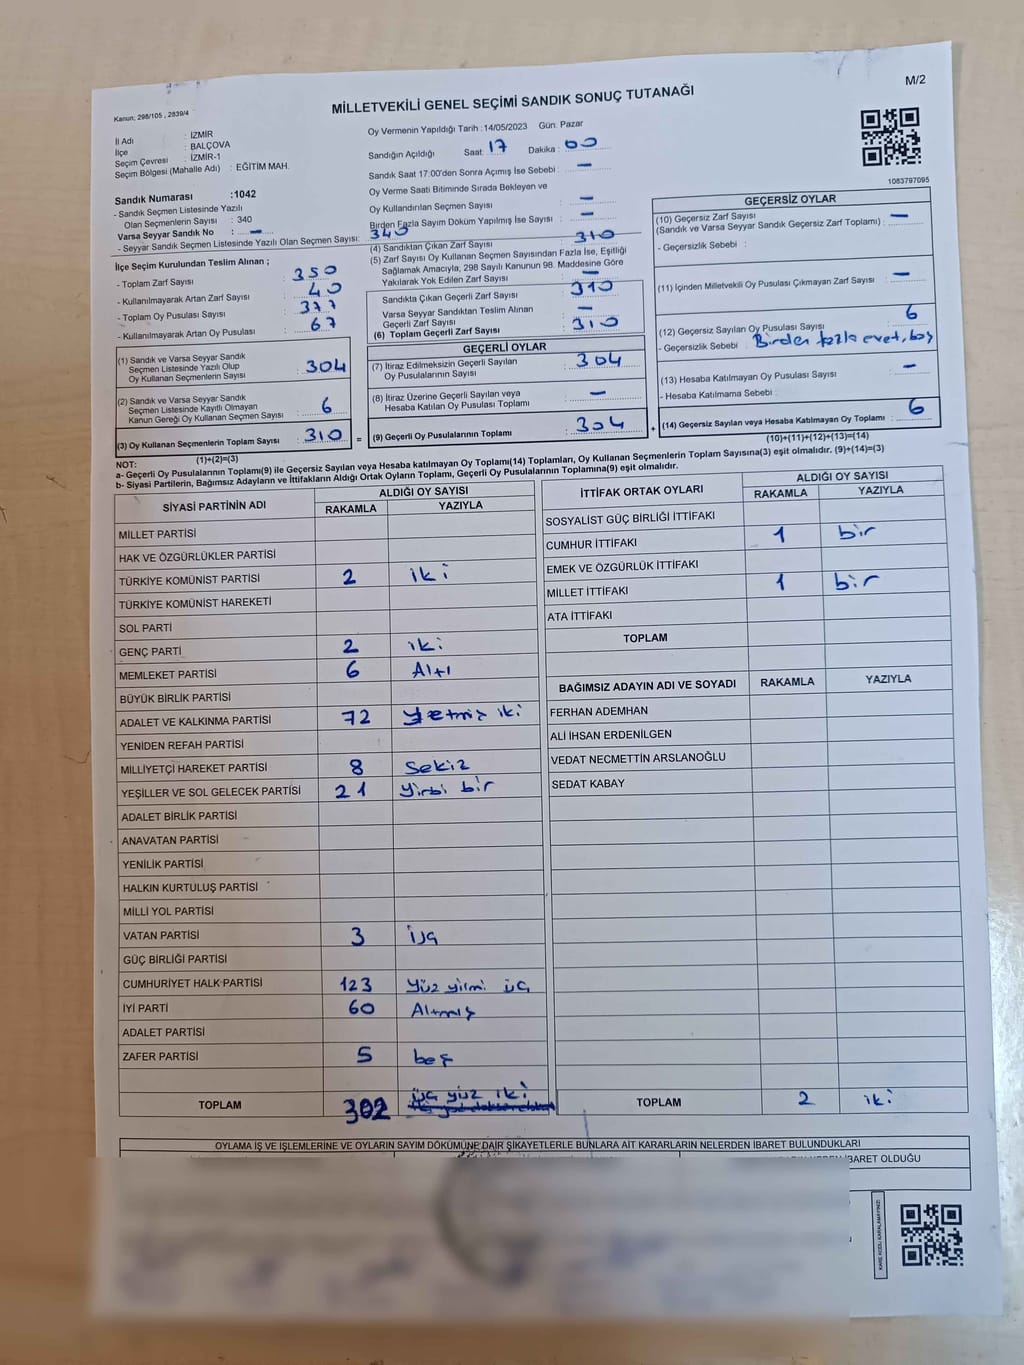 M/2
Kanun; 298/105 , 2839/4
MİLLETVEKİLİ GENEL SEÇİMİ SANDIK SONUÇ TUTANAĞI
İl Adı : İZMİR
İlçe : BALÇOVA
Seçim Çevresi : İZMİR-1
Seçim Bölgesi (Mahalle Adı) : EĞİTİM MAH.
Sandık Numarası :1042
- Sandık Seçmen Listesinde Yazılı
Olan Seçmenlerin Sayısı : 340
Varsa Seyyar Sandık No : —
- Seyyar Sandık Seçmen Listesinde Yazılı Olan Seçmen Sayısı: 340
İlçe Seçim Kurulundan Teslim Alınan ;
- Toplam Zarf Sayısı : 350
- Kullanılmayarak Artan Zarf Sayısı : 40
- Toplam Oy Pusulası Sayısı : 377
- Kullanılmayarak Artan Oy Pusulası : 67
(1) Sandık ve Varsa Seyyar Sandık
Seçmen Listesinde Yazılı Olup
Oy Kullanan Seçmenlerin Sayısı : 304
(2) Sandık ve Varsa Seyyar Sandık
Seçmen Listesinde Kayıtlı Olmayan
Kanun Gereği Oy Kullanan Seçmen Sayısı : 6
(3) Oy Kullanan Seçmenlerin Toplam Sayısı : 310 =
(1)+(2)=(3)
Oy Vermenin Yapıldığı Tarih :14/05/2023 Gün: Pazar
Sandığın Açıldığı Saat: 17 Dakika : 00
Sandık Saat 17:00'den Sonra Açımış İse Sebebi : —
Oy Verme Saati Bitiminde Sırada Bekleyen ve
Oy Kullandırılan Seçmen Sayısı : —
Birden Fazla Sayım Döküm Yapılmış İse Sayısı : —
(4) Sandıktan Çıkan Zarf Sayısı : 310
(5) Zarf Sayısı Oy Kullanan Seçmen Sayısından Fazla İse, Eşitliği
Sağlamak Amacıyla, 298 Sayılı Kanunun 98. Maddesine Göre
Yakılarak Yok Edilen Zarf Sayısı : —
Sandıkta Çıkan Geçerli Zarf Sayısı : 310
Varsa Seyyar Sandıktan Teslim Alınan
Geçerli Zarf Sayısı : —
(6) Toplam Geçerli Zarf Sayısı : 310
GEÇERLİ OYLAR
(7) İtiraz Edilmeksizin Geçerli Sayılan
Oy Pusulalarının Sayısı : 304
(8) İtiraz Üzerine Geçerli Sayılan veya
Hesaba Katılan Oy Pusulası Toplamı : —
(9) Geçerli Oy Pusulalarının Toplamı : 304 +
1083797095
GEÇERSİZ OYLAR
(10) Geçersiz Zarf Sayısı
(Sandık ve Varsa Seyyar Sandık Geçersiz Zarf Toplamı) : —
- Geçersizlik Sebebi :
(11) İçinden Milletvekili Oy Pusulası Çıkmayan Zarf Sayısı : —
(12) Geçersiz Sayılan Oy Pusulası Sayısı : 6
- Geçersizlik Sebebi : Birden fazla evet, boş
(13) Hesaba Katılmayan Oy Pusulası Sayısı : —
- Hesaba Katılmama Sebebi :
(14) Geçersiz Sayılan veya Hesaba Katılmayan Oy Toplamı : 6
(10)+(11)+(12)+(13)=(14)
NOT:
a- Geçerli Oy Pusulalarının Toplamı(9) ile Geçersiz Sayılan veya Hesaba katılmayan Oy Toplamı(14) Toplamları, Oy Kullanan Seçmenlerin Toplam Sayısına(3) eşit olmalıdır. (9)+(14)=(3)
b- Siyasi Partilerin, Bağımsız Adayların ve İttifakların Aldığı Ortak Oyların Toplamı, Geçerli Oy Pusulalarının Toplamına(9) eşit olmalıdır.
SİYASİ PARTİNİN ADI ALDIĞI OY SAYISI
RAKAMLA YAZIYLA
MİLLET PARTİSİ
HAK VE ÖZGÜRLÜKLER PARTİSİ
TÜRKİYE KOMÜNİST PARTİSİ 2 iki
TÜRKİYE KOMÜNİST HAREKETİ
SOL PARTİ
GENÇ PARTİ 2 iki
MEMLEKET PARTİSİ 6 Altı
BÜYÜK BİRLİK PARTİSİ
ADALET VE KALKINMA PARTİSİ 72 yetmiş iki
YENİDEN REFAH PARTİSİ
MİLLİYETÇİ HAREKET PARTİSİ 8 Sekiz
YEŞİLLER VE SOL GELECEK PARTİSİ 21 yirbi bir
ADALET BİRLİK PARTİSİ
ANAVATAN PARTİSİ
YENİLİK PARTİSİ
HALKIN KURTULUŞ PARTİSİ
MİLLİ YOL PARTİSİ
VATAN PARTİSİ 3 üç
GÜÇ BİRLİĞİ PARTİSİ
CUMHURİYET HALK PARTİSİ 123 yüz yilmi üç
İYİ PARTİ 60 Altmış
ADALET PARTİSİ
ZAFER PARTİSİ 5 beş
TOPLAM 302 üç yüz iki
İTTİFAK ORTAK OYLARI ALDIĞI OY SAYISI
RAKAMLA YAZIYLA
SOSYALİST GÜÇ BİRLİĞİ İTTİFAKI
CUMHUR İTTİFAKI 1 bir
EMEK VE ÖZGÜRLÜK İTTİFAKI
MİLLET İTTİFAKI 1 bir
ATA İTTİFAKI
TOPLAM
BAĞIMSIZ ADAYIN ADI VE SOYADI RAKAMLA YAZIYLA
FERHAN ADEMHAN
ALİ İHSAN ERDENİLGEN
VEDAT NECMETTİN ARSLANOĞLU
SEDAT KABAY
TOPLAM 2 iki
OYLAMA İŞ VE İŞLEMLERİNE VE OYLARIN SAYIM DÖKÜMÜNE DAİR ŞİKAYETLERLE BUNLARA AİT KARARLARIN NELERDEN İBARET BULUNDUKLARI
İBARET OLDUĞU
KARE KODU KARALAMAYINIZ!